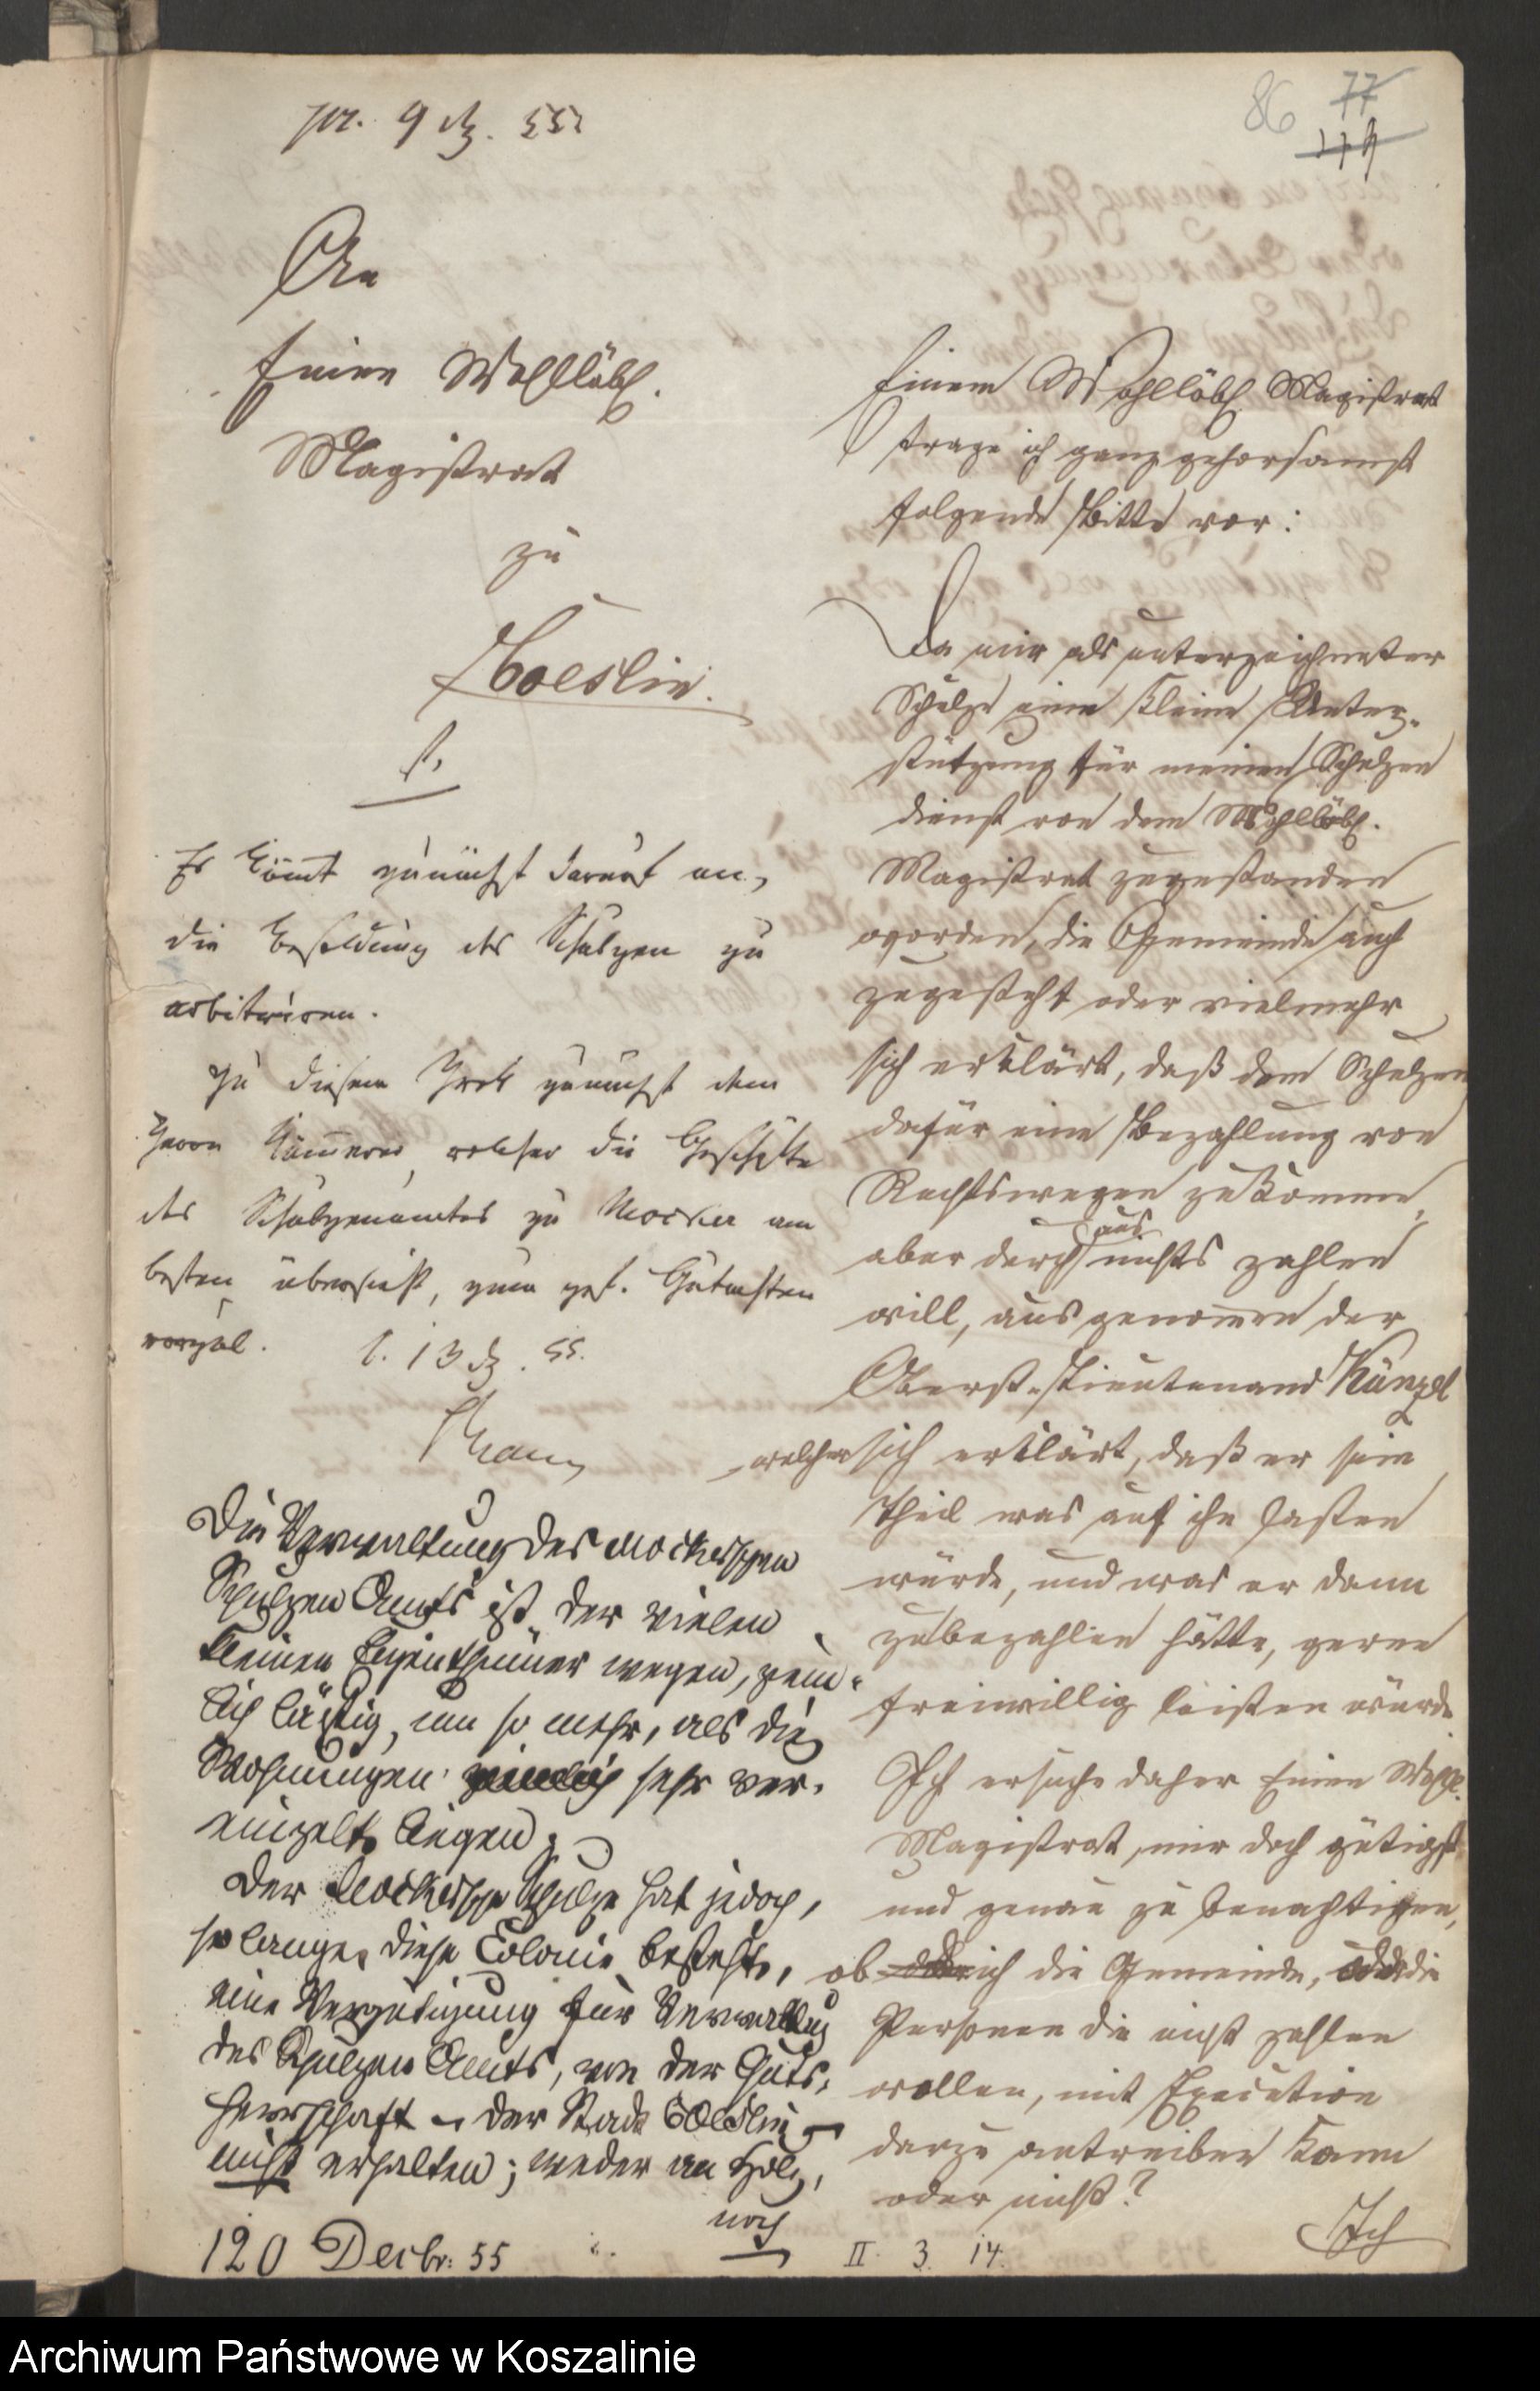 86 77
179
pr. 9 dz. 55
An
Einen Wohllöbl.
Magistrat
zu
Coeslin.
Es kömmt zunächst darauf an,
die Besoldung des Schulzen zu
arbitriren.
Zu diesem Zweck zunächst dem
Herrn Kämmerer, welcher die Geschäfte
des Schulzenamtes zu Mocker am
besten übersieht, zum gef. Gutachten
vorzul. C. 13 dz. 55.
Die Verwaltung des Mockerschen
Schulzen Amts ist der vielen
kleinen Eigenthümer wegen, ziem-
lich lästig, um so mehr, als die
Wohnungen ziemlich sehr ver-
einzelt liegen;
Der Mockersche Schulze hat jedoch,
so lange diese Colonie besteht,
eine Vergütigung für Verwaltung
des Schulzen Amts, von der Guts-
herrschaft - der Stadt Cöslin -
nicht erhalten; weder an Holz,
noch
120 Decbr: 55
Einem Wohllöbl. Magistrat
trage ich ganz gehorsamst
folgende Bitte vor:
Da mir als unterzeichneter
Schulze eine kleine Unter-
stützung für meinen Schulzen
dienst von dem Wohllöbl.
Magistrat zugestanden
worden, die Gemeinde auch
zugesteht oder vielmehr
sich erklärt, daß dem Schulzen
dafür eine Bezahlung von
Rechtswegen zukomme,
aber durchaus nichts zahlen
will, ausgenommen der
Oberst-Lieutenand Künzel
welcher sich erklärt, daß er sein
Theil was auf ihn hasten
würde, und was er dann
zubezahlen hätte, gerne
freiwillig leisten würde.
Ich ersuche daher Einen Wohll.
Magistrat, mir doch gütigst
und genau zu benachtigen,
ob ich die Gemeinde, oder die
Personen die nicht zahlen
wollen, mit Execution
darzu antreiben kann
oder nicht?
Ich
II. 3. 14.
Archiwum Państwowe w Koszalinie